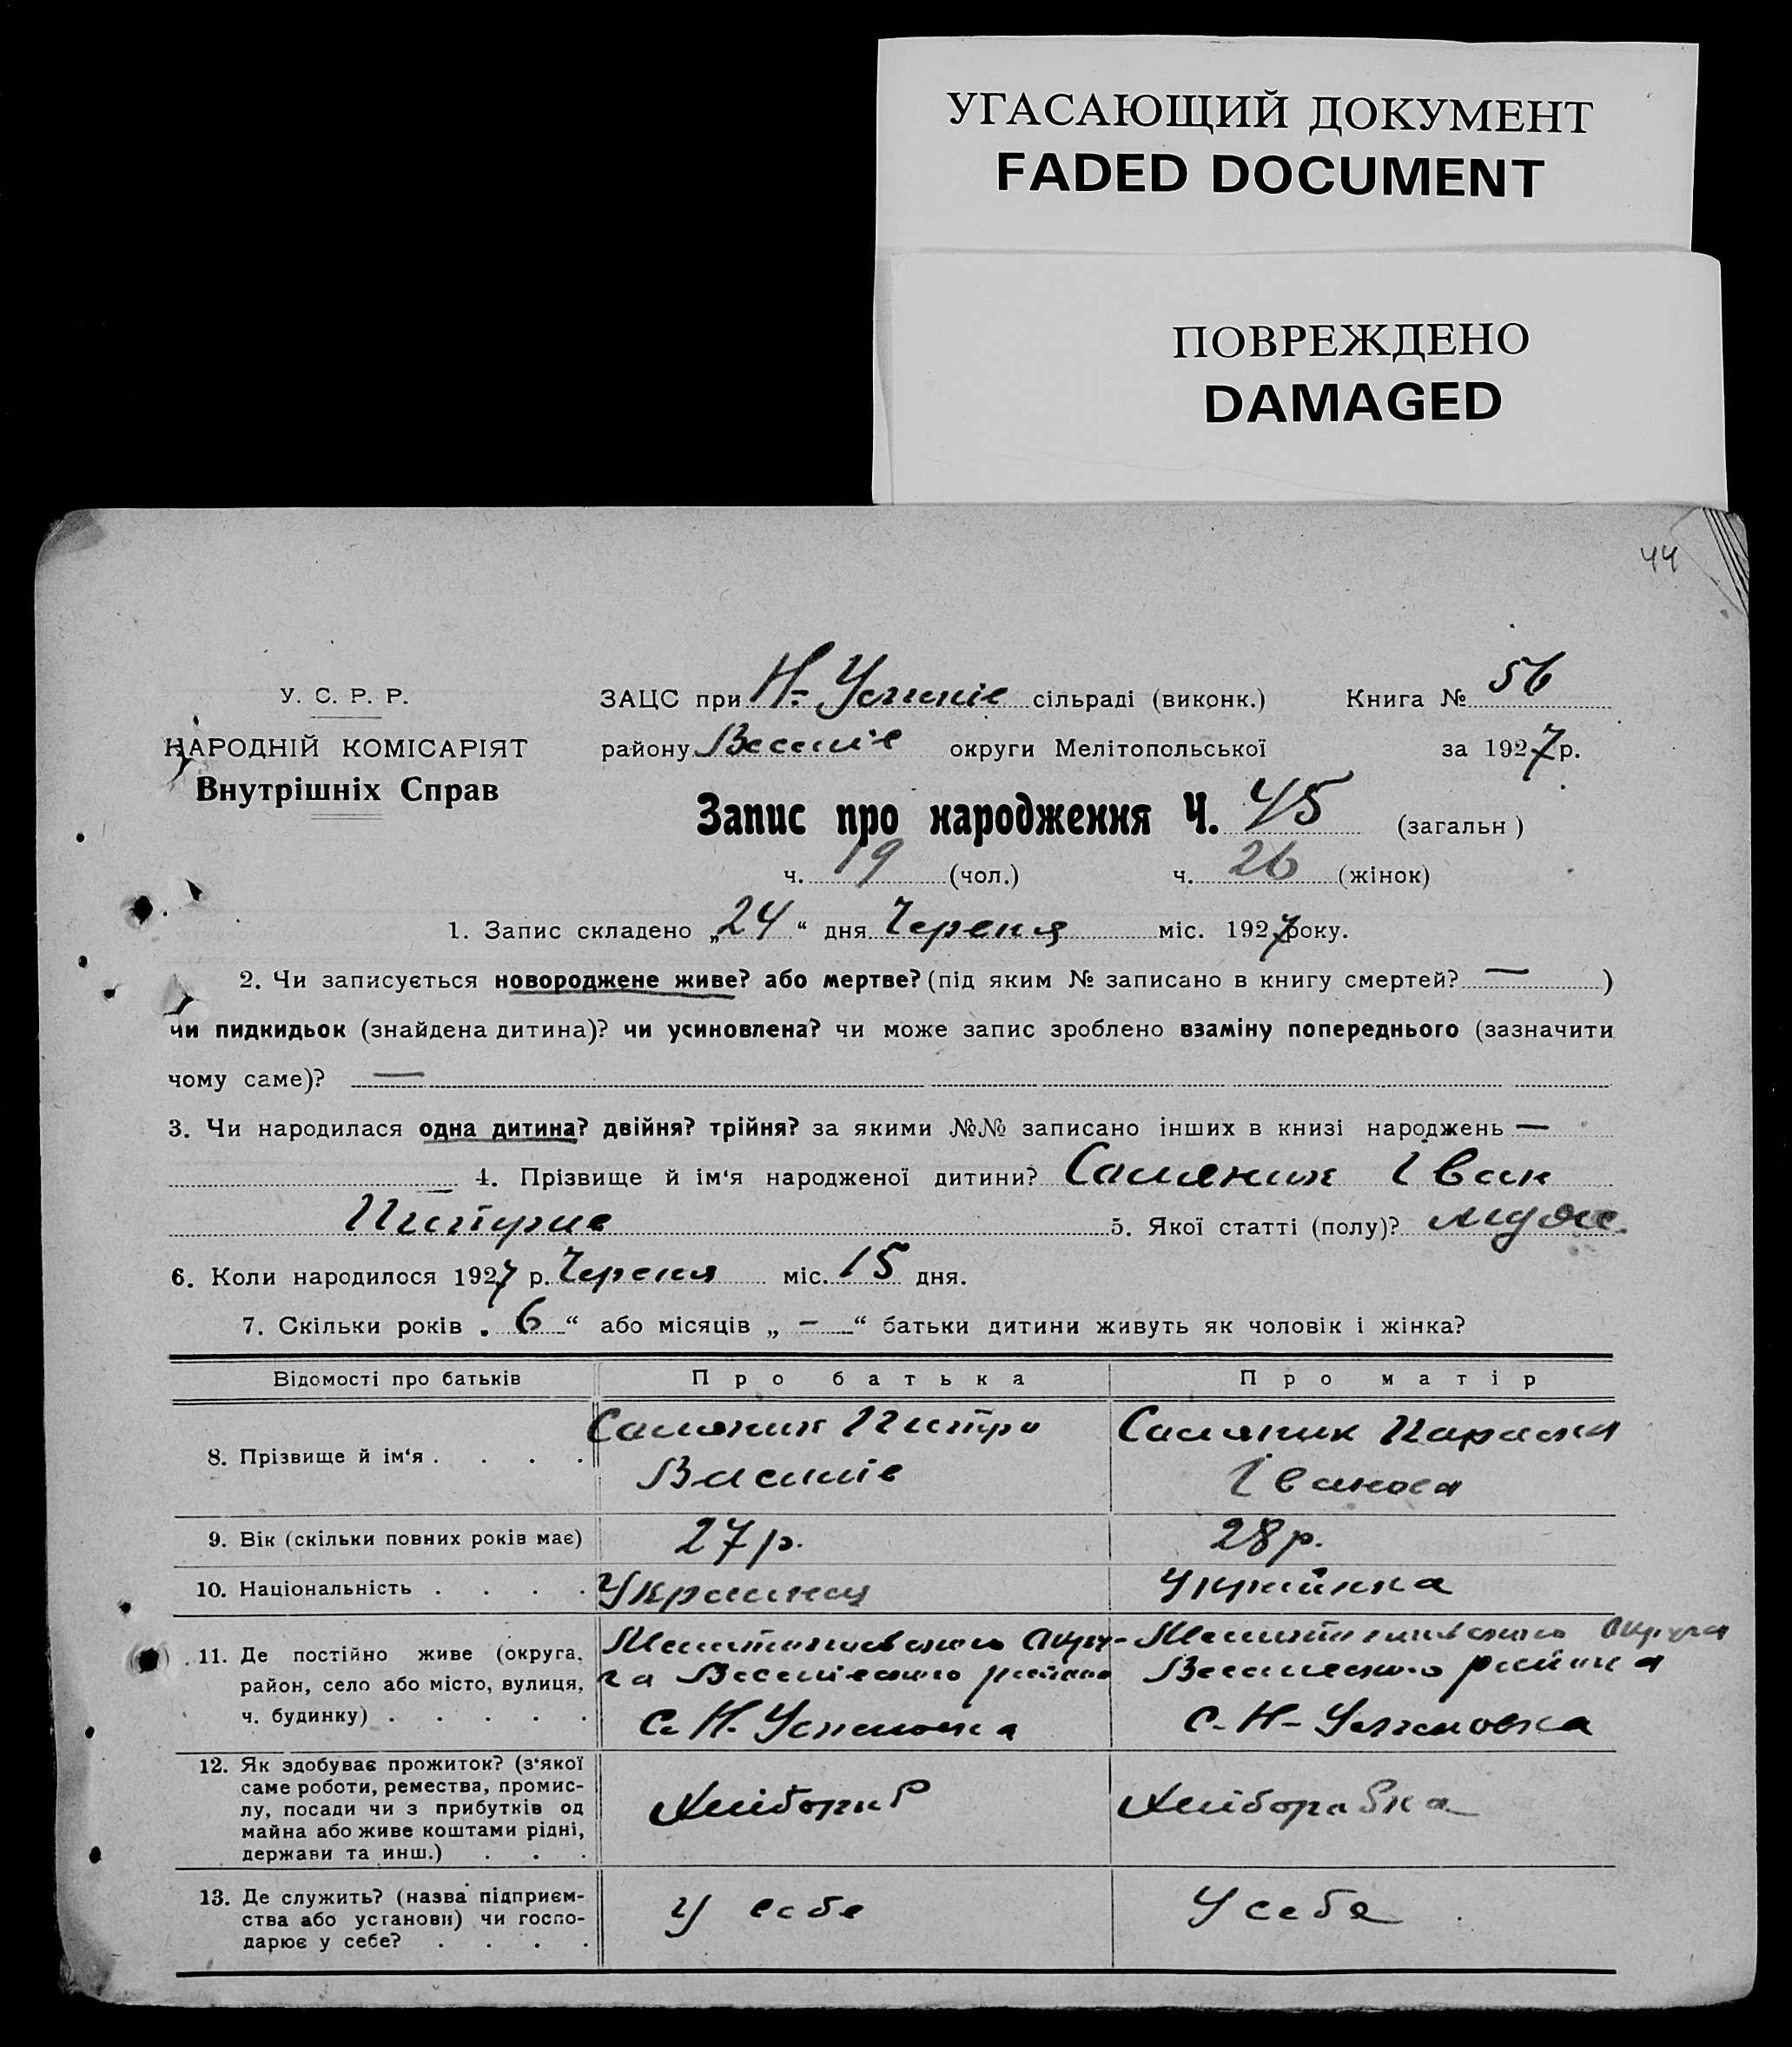 УГАСАЮЩИЙ ДОКУМЕНТ
FADED DOCUMENT
ПОВРЕЖДЕНО
DAMAGED
44
У. С. Р. Р.
НАРОДНІЙ КОМІСАРІЯТ
Внутрішніх Справ
ЗАЦС при Н- сільраді (виконк.) Книга № 56
району Веселів округи Мелітопольської за 1927 р.
Запис про народження Ч. 45 (загальн)
ч. 19 (чол.) ч. 26 (жінок)
1. Запис складено „24“ дня Червня міс. 1927 року.
2. Чи записується новороджене живе? або мертве? (під яким № записано в книгу смертей? — )
чи пидкидьок (знайдена дитина)? чи усиновлена? чи може запис зроблено взаміну попереднього (зазначити
чому саме)? —
3. Чи народилася одна дитина? двійня? трійня? за якими №№ записано інших в книзі народжень —
4. Прізвище й ім‘я народженої дитини? Іван
5. Якої статті (полу)?
6. Коли народилося 1927 р. Червня міс. 15 дня.
7. Скільки років „6“ або місяців „ - “ батьки дитини живуть як чоловік і жінка?
Відомості про батьків Про батька Про матір
8. Прізвище й ім‘я . . . . Петро Параска
Василів Іванова
9. Вік (скільки повних років має) 27 р. 28 р.
10. Національність . . . . Українец Українка
11. Де постійно живе (округа, район, село або місто, вулиця, ч. будинку) . . . . .
Мелитопольского Округа Веселівского района
С. Н.
Мелитопольского Округа
Веселівского района
С. Н-
12. Як здобуває прожиток? (з‘якої саме роботи, ремества, промислу, посади чи з прибутків од майна або живе коштами рідні, держави та инш.) . . . Хлібороб Хліборобка
13. Де служить? (назва підприємства або установи) чи господарює у себе? . . . . У себе У себе